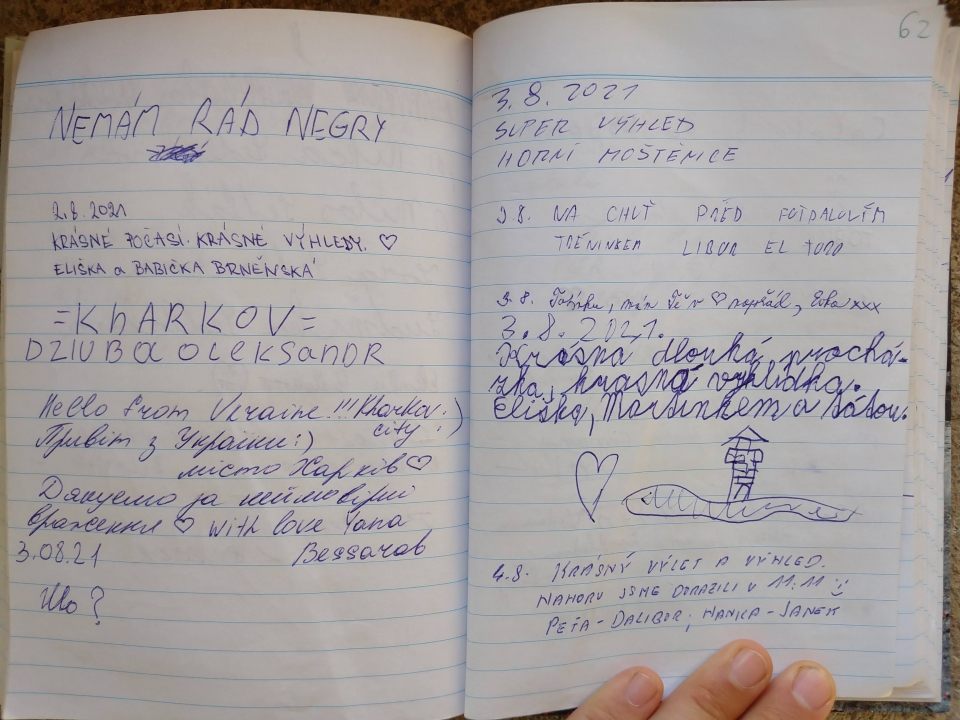 NEMÁM RÁD NEGRY
2.8.2021
KRÁSNÉ POČASÍ. KRÁSNÉ VÝHLEDY. ♡
ELIŠKA a BABIČKA BRNĚNSKÁ
=KhARKOV=
DZIUBa OLeKSaNDR
Hello from Ukraine!!! Kharkov
city :)
Привіт з України:)
місто Харків♡
Дякуємо за неймовірні
враження ♡ with love Yana
3.08.21 Bessarab
Шо?
62
3.8.2021
SUPER VÝHLED
HORNÍ MOŠTĚNICE
3.8. NA CHUŤ PŘED FOTBALOVÝM
TRÉNINKEM LIBOR EL TORO
3.8. mám Tě v ♡ napořád, xxx
3.8.2021.
Krásná dlouhá prochá-
zka, krásná vyhlídka.
Eliška, Martinkem a tátou.
4.8. KRÁSNÝ VÝLET A VÝHLED.
NAHORU JSME DORAZILI V 11:11 :)
PEŤA-DALIBOR; HANKA-JANEK